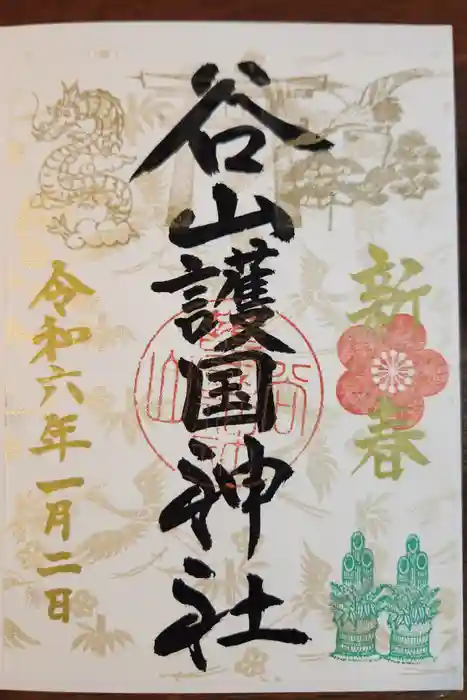 新春
谷山護国神社
令和六年一月二日